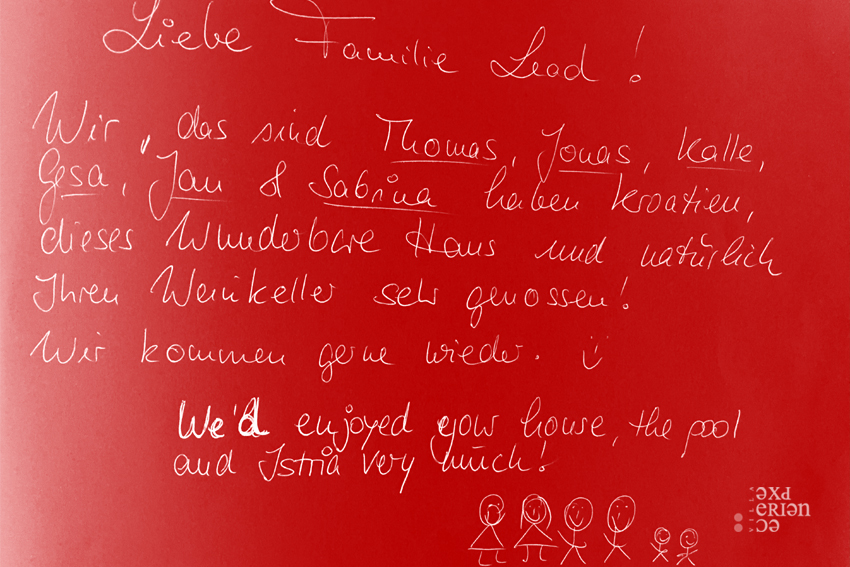 Liebe Familie Lead!
Wir, das sind Thomas, Jonas, Kalle,
Gesa, Jan & Sabrina haben Kroatien,
dieses Wunderbare Haus und natürlich
Ihren Weinkeller sehr genossen!
Wir kommen gerne wieder. :)
We'd enjoyed your house, the pool
and Istria very much!
VILLA
exp
erien
ce